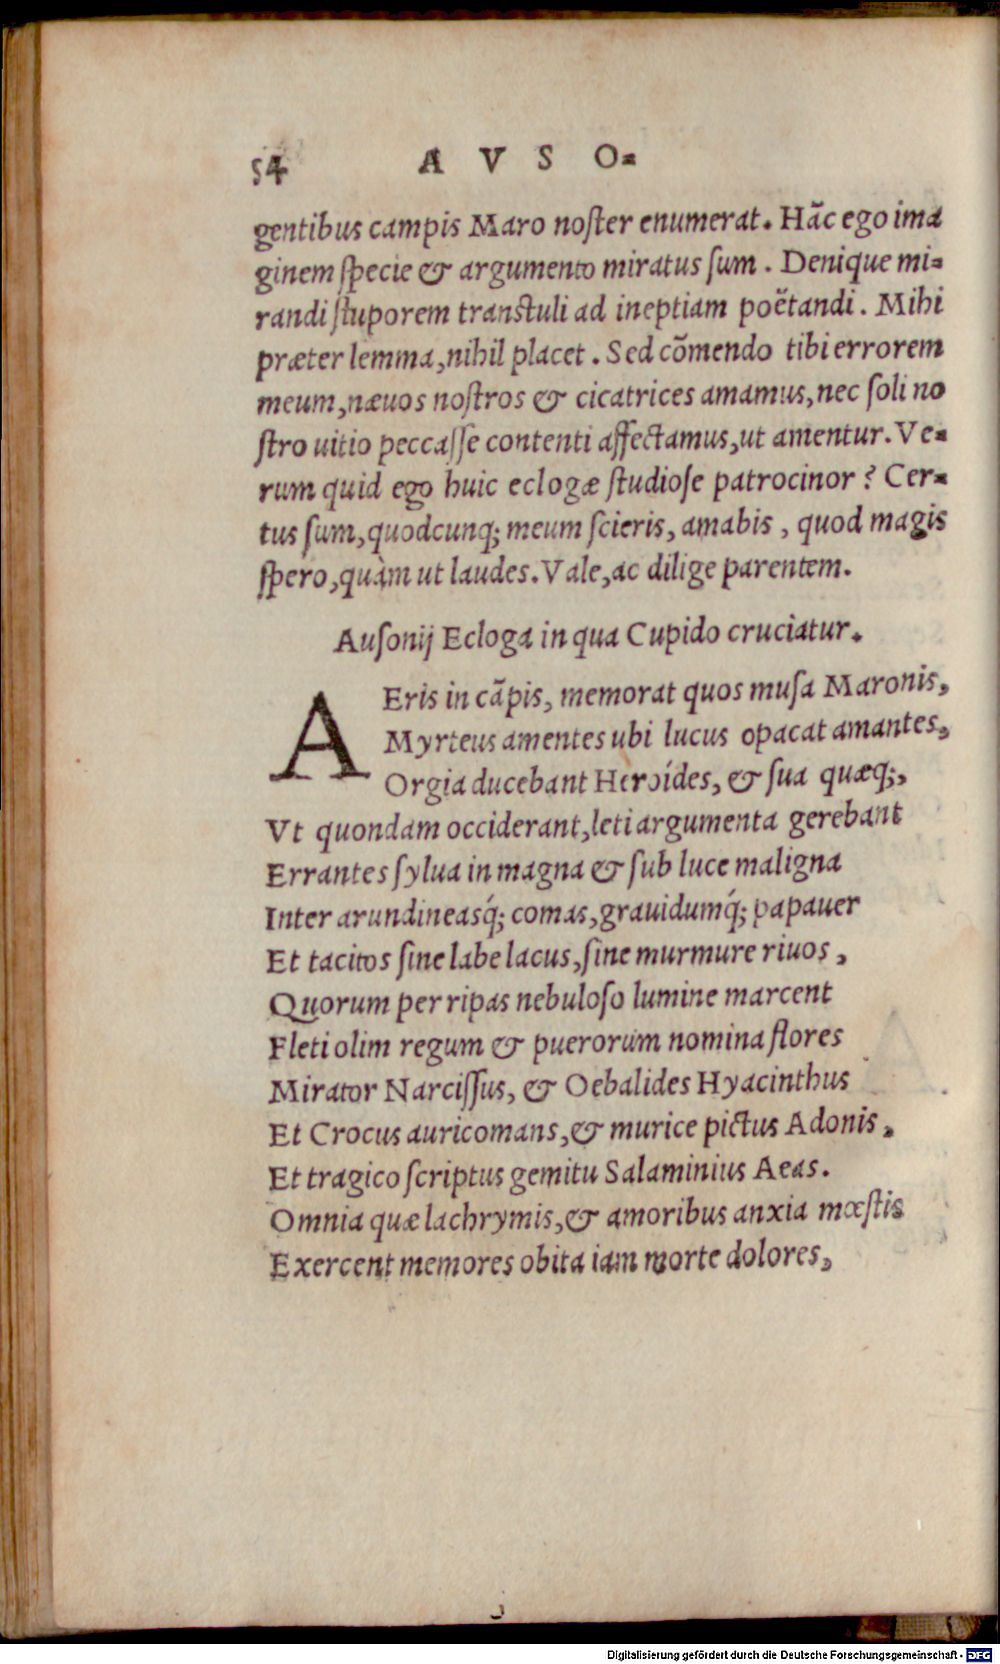 54 A V S O-
gentibus campis Maro noſter enumerat. Hāc ego ima
ginem ſpecie & argumento miratus ſum. Denique mi-
randi ſtuporem tranſtuli ad ineptiam poëtandi. Mihi
præter lemma, nihil placet. Sed cōmendo tibi errorem
meum, næuos noſtros & cicatrices amamus, nec ſoli no
ſtro uitio peccaſſe contenti affectamus, ut amentur. Ve-
rum quid ego huic eclogæ ſtudioſe patrocinor? Cer-
tus ſum, quodcunq; meum ſcieris, amabis, quod magis
ſpero, quàm ut laudes. Vale, ac dilige parentem.
Auſonij Ecloga in qua Cupido cruciatur.
AEris in cāpis, memorat quos muſa Maronis,
Myrteus amentes ubi lucus opacat amantes,
Orgia ducebant Heroídes, & ſua quæq;,
Vt quondam occiderant, leti argumenta gerebant
Errantes ſylua in magna & ſub luce maligna
Inter arundineasq́; comas, grauidumq́; papauer
Et tacitos ſine labe lacus, ſine murmure riuos,
Quorum per ripas nebuloſo lumine marcent
Fleti olim regum & puerorum nomina flores
Mirator Narciſſus, & Oebalides Hyacinthus
Et Crocus auricomans, & murice pictus Adonis,
Et tragico ſcriptus gemitu Salaminius Aeas.
Omnia quæ lachrymis, & amoribus anxia mœſtis
Exercent memores obita iam morte dolores,
Digitalisierung gefördert durch die Deutsche Forschungsgemeinschaft - DFG